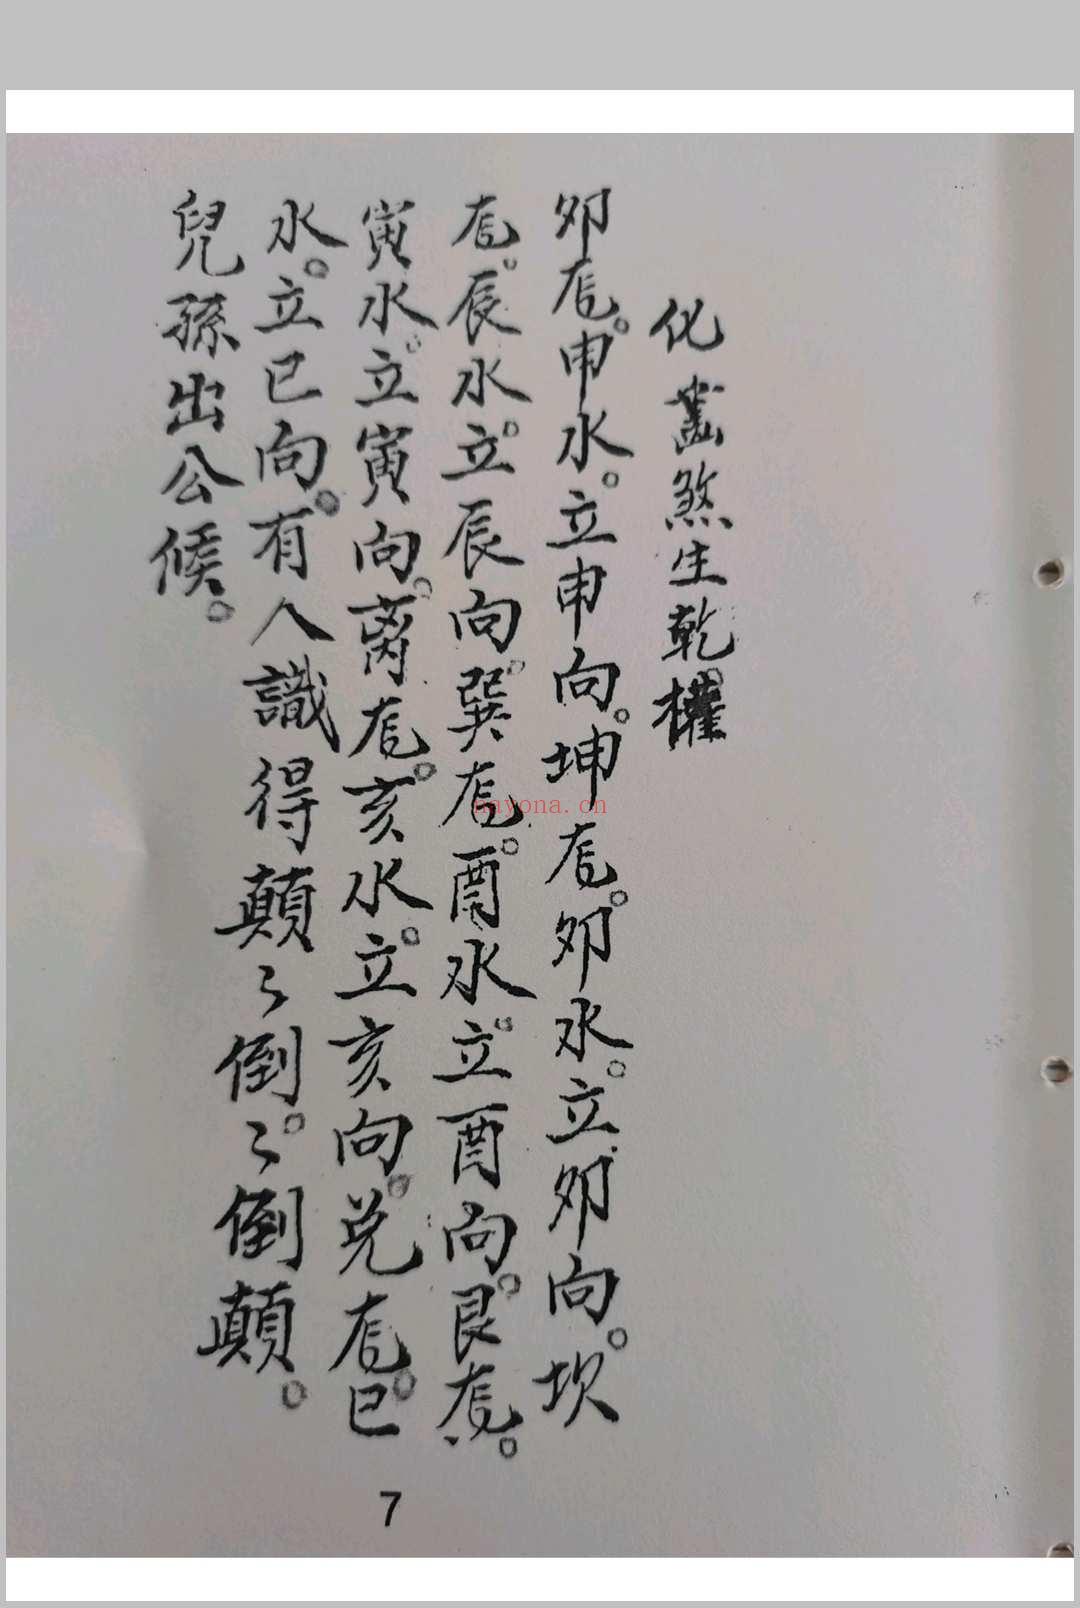 化煞生乾。權
夘龙。申水。立申向。坤龙。夘水。立夘向。坎
龙。辰水。立辰向。巽龙。酉水。立酉向。艮龙。
寅水。立寅向。离龙。亥水。立亥向。兑龙。巳
水。立巳向。有人識得顛々倒。々倒顛。
兒孫出公候。
7
nayona.cn